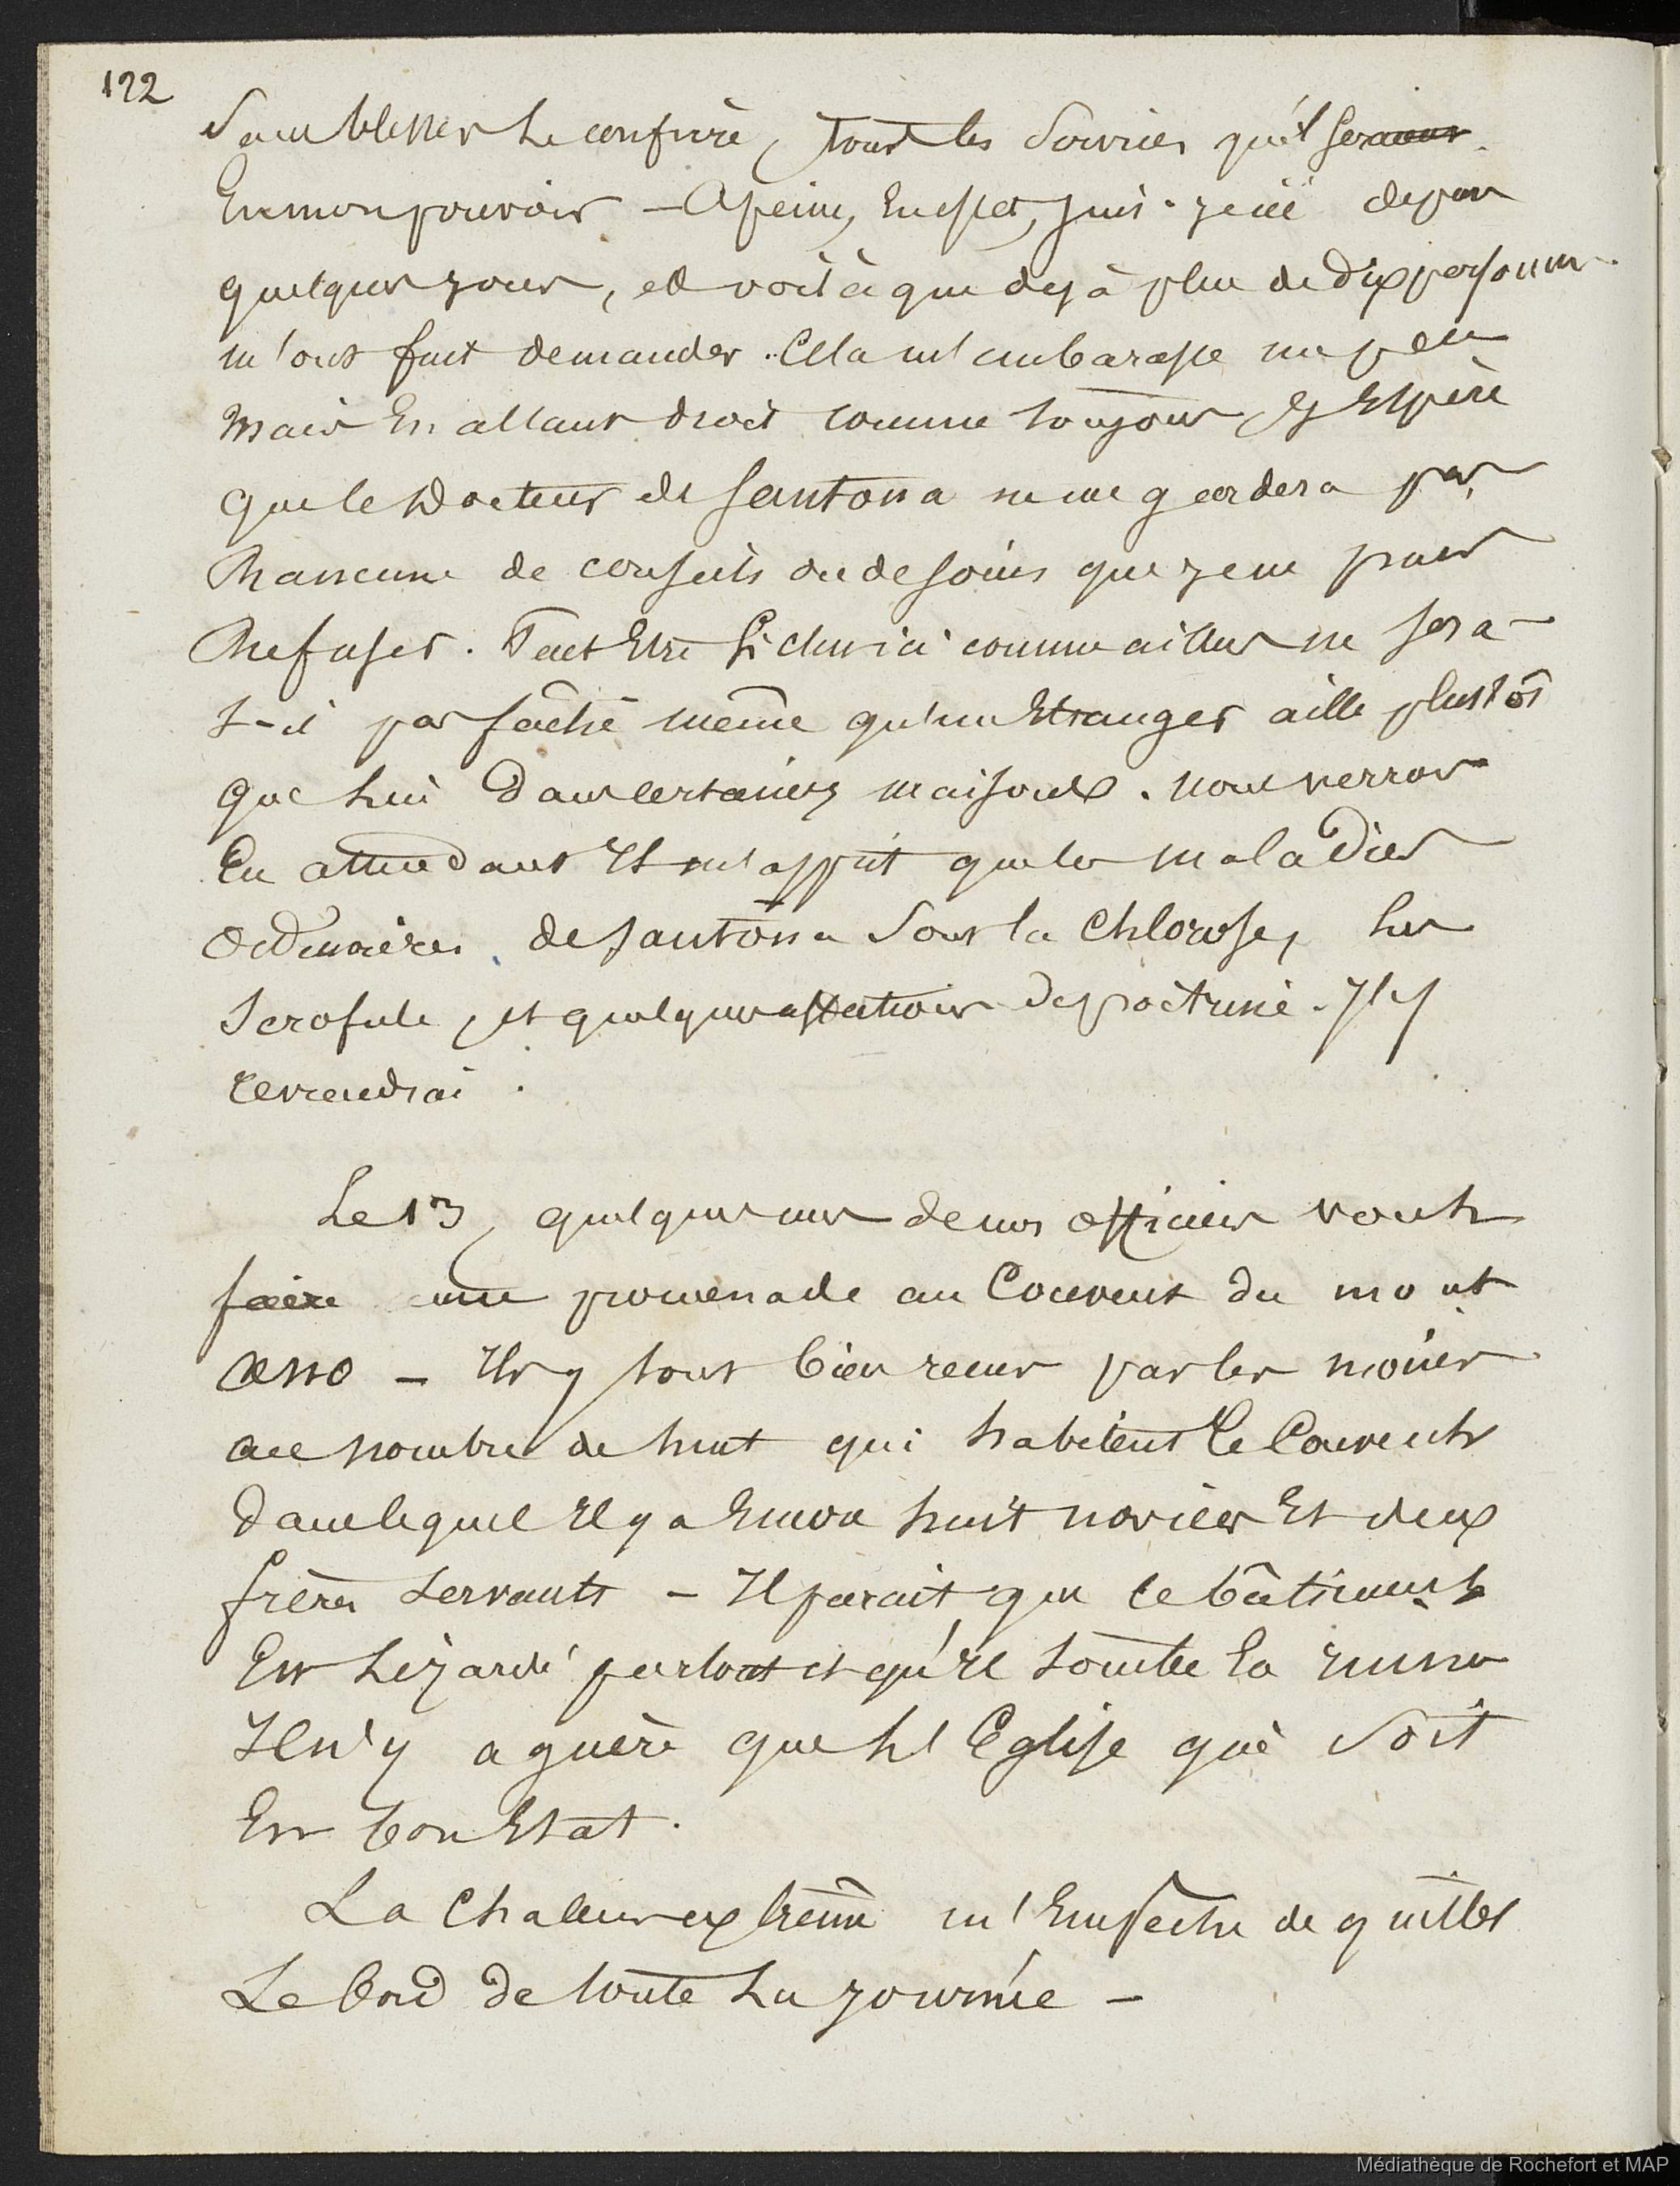 122
Sans blesser le confrère, tous les services qu'il sera
En mon pouvoir - A peine, En effet, suis-je ici depuis
quelques jours, et voilà que déjà plus de dix personnes
m'ont fait demander. Cela m'embarasse un peu
Mais En allant droit comme toujours, J'Espère
que le Docteur de Santona ne me gardera pas
Rancune de conseils ou de soins que je ne puis
Refuser. Peut Etre ici comme ailleurs ne sera-
t-il pas fâché même qu'un Etranger aille plustôt
que lui Dans certaines maisons. Nous verrons
En attendant Il m'apprit que les maladies
Ordinaires de Santona Sont la Chlorose, les
Scrofule, et quelques affections de poitrine. J'y
reviendrai.
Le 13, quelques uns de nos officiers vont
faire une promenade au Couvent du mont
Ano - Ils y sont bien reçus par les moines
au nombre de huit qui habitent le Couvent
Dans lequel Il y a Encore huit novices Et deux
frères Servants - Il parait que le bâtiment
Est Lézardé partout et qu'Il tombe En ruines
Il n'y a guère que l'Eglise qui soit
En bon Etat.
La Chaleur extrême m'Empêche de quitter
Le bord de toute La journée -
Médiathèque de Rochefort et MAP